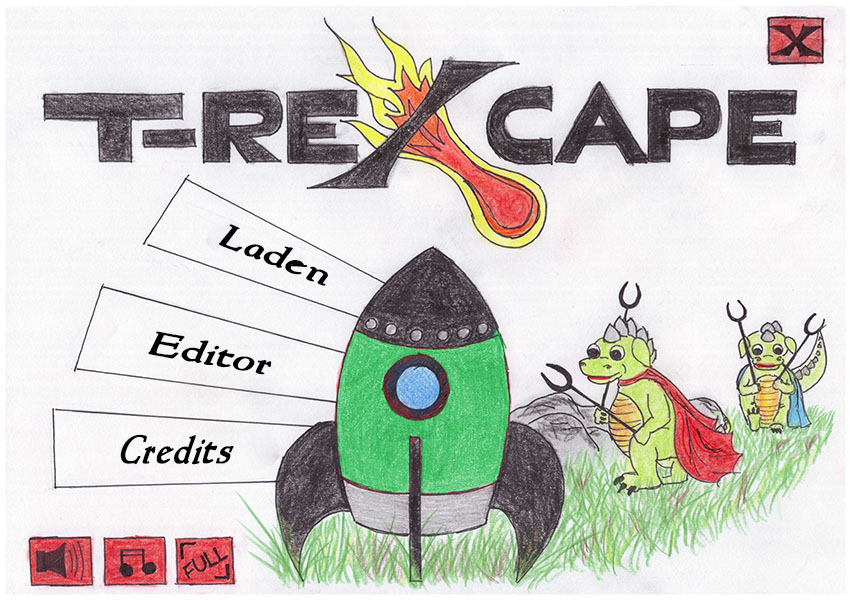 X
T-REXCAPE
Laden
Editor
Credits
FULL